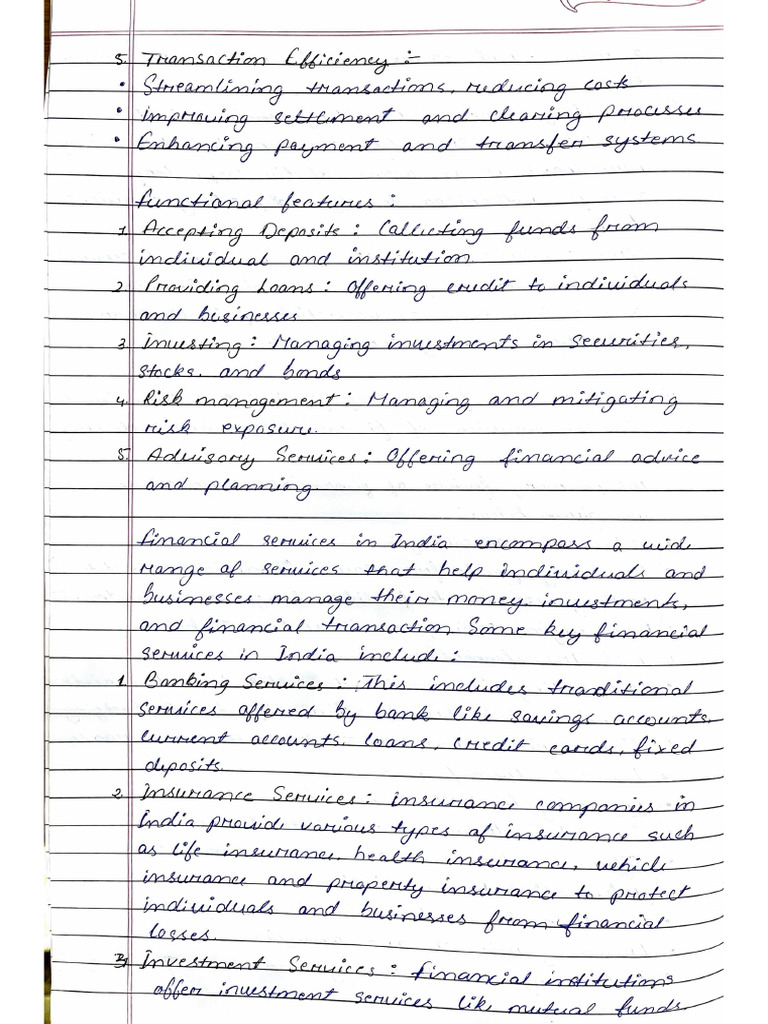 5. Transaction Efficiency :-
• Streamlining transactions, reducing costs
• Improving settlement and clearing processes
• Enhancing payment and transfer systems
functional features :
1. Accepting Deposits : Collecting funds from
individual and institution
2. Providing Loans : Offering credit to individuals
and businesses
3. Investing : Managing investments in securities,
stocks, and bonds
4. Risk management : Managing and mitigating
risk exposure.
5. Advisory Services : Offering financial advice
and planning.
financial services in India encompass a wide
range of services that help individuals and
businesses manage their money, investments,
and financial transaction Some key financial
services in India include :
1. Banking Services : This includes traditional
services offered by bank like savings accounts,
current accounts, loans, credit cards, fixed
deposits.
2. Insurance Services : insurance companies in
India provide various types of insurance such
as life insurance, health insurance, vehicle
insurance and property insurance to protect
individuals and businesses from financial
losses.
3. Investment Services : financial institutions
offer investment services like mutual funds.